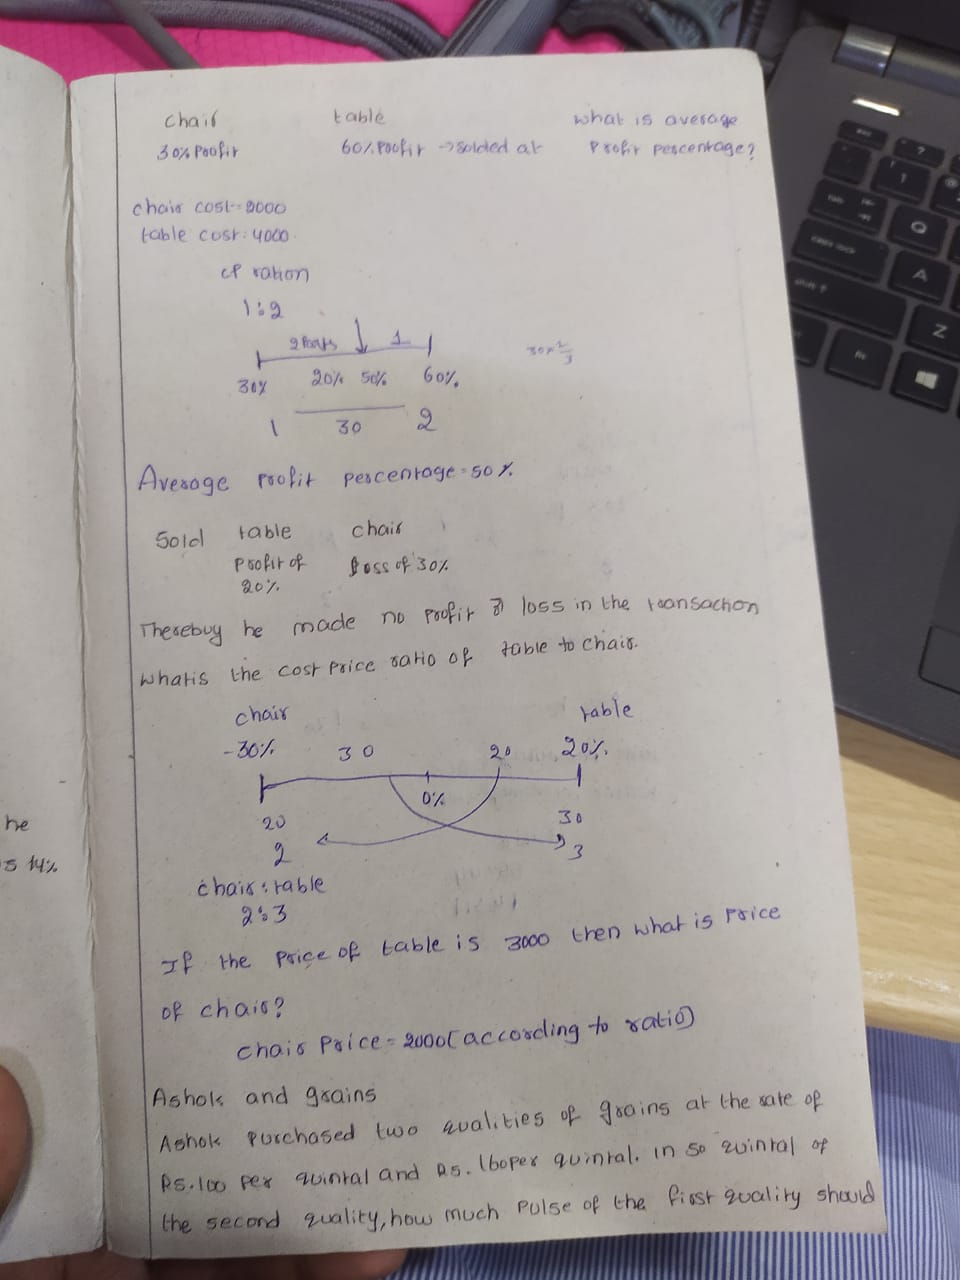 chair table what is average
30% Profit 60% Profit → solded at Profit percentage?
chair cost=2000
table cost: 4000
CP ration
1:2
2 Parts 1
30%  20% 50% 60%
30×2/3
1 30 2
Average profit percentage=50%
Sold table chair
Profit of loss of 30%
20%
Therebuy he made no profit or loss in the transaction
whatis the cost price ratio of table to chair.
chair table
-30% 30 20 20%
0%
20 30
2 3
chair:table
2:3
If the price of table is 3000 then what is price
of chair?
chair Price=2000(according to ratio)
Ashok and grains
Ashok purchased two qualities of grains at the rate of
Rs.100 per quintal and Rs.160per quintal. in 50 quintal of
the second quality, how much pulse of the first quality should
he
s 14%